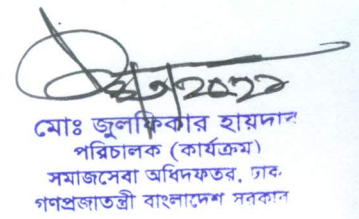 ২০২১
মোঃ জুলফিকার হায়দার
পরিচালক (কার্যক্রম)
সমাজসেবা অধিদফতর, ঢাকা
গণপ্রজাতন্ত্রী বাংলাদেশ সরকার